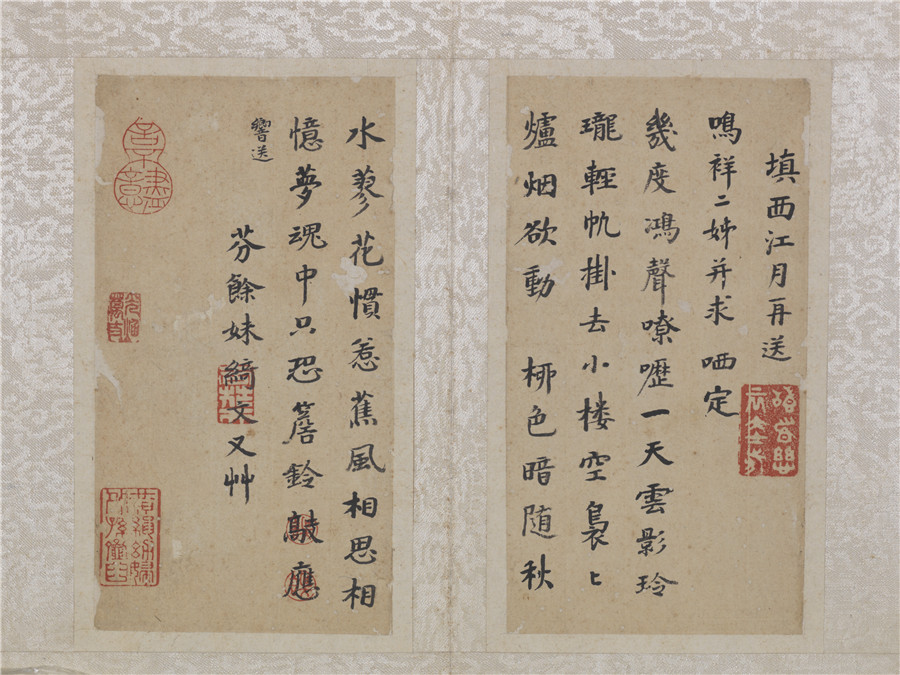 填西江月再送
鳴祥二姊并求 哂定
幾度鴻聲嘹嚦一天雲影玲
瓏輕帆掛去小楼空裊〻
爐烟欲動 柳色暗随秋
水蓼花慣惹蕉風相思相
憶夢魂中只恐簷鈴敲應
響送
芬餘妹綺文又艸